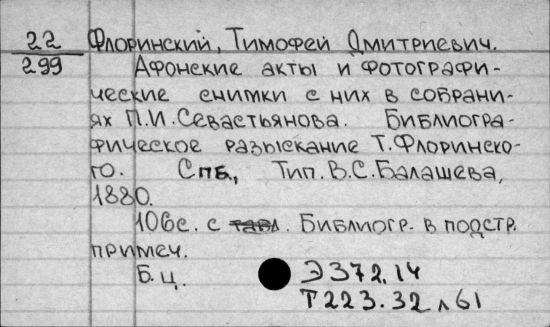 22 Флоринский, Тимофей Дмитриевич.
299 Афонские акты и фотографи-
ческие снимки с них в собрани-
ях П.И.Севастьянова. Библиогра-
фическое разыскание Т.Флоринско-
го. Спб., Тип. В.С.Балашева,
1880.
106с. с табл. Библиогр. в подстр.
примеч.
Б.ц. Э372.14
Т223.32л61